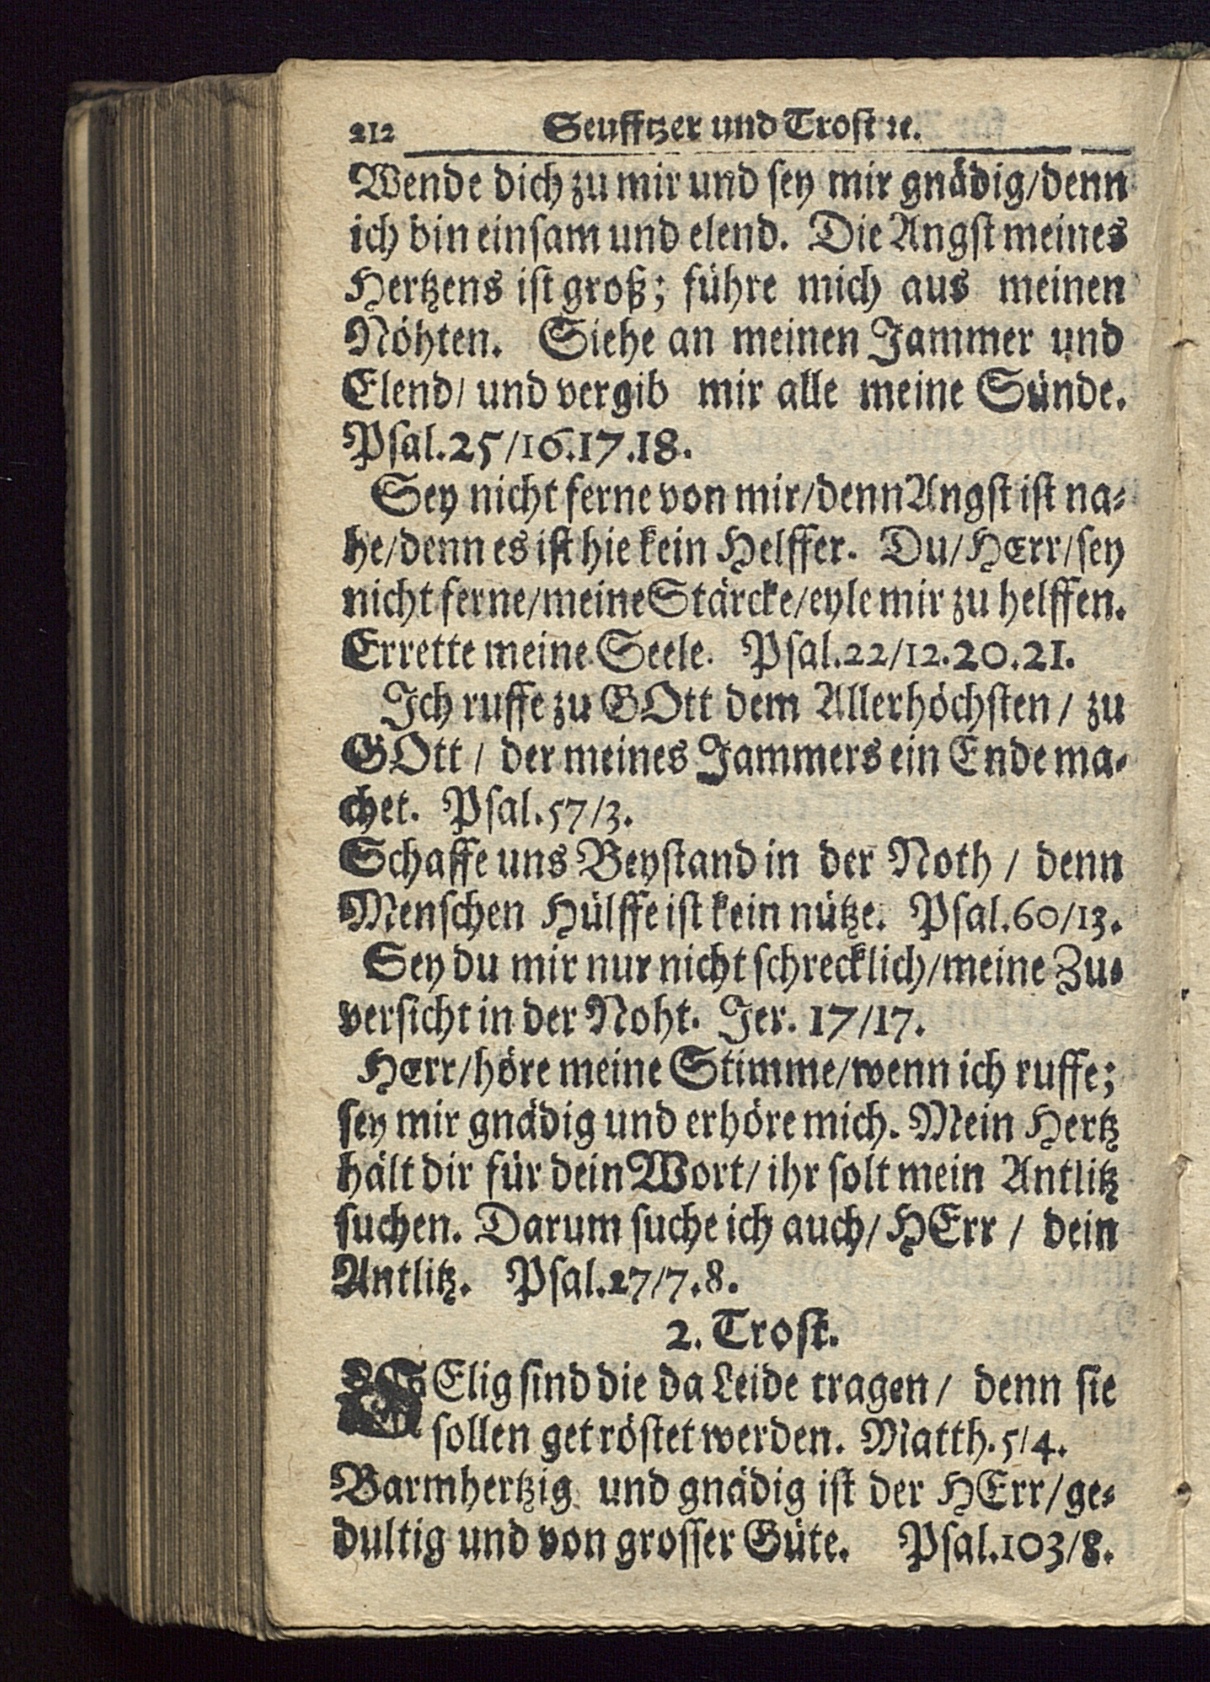 212 Seufftzer und Trost ꝛc.
Wende dich zu mir und sey mir gnädig/denn
ich bin einsam und elend. Die Angst meines
Hertzens ist groß; führe mich aus meinen
Nöhten. Siehe an meinen Jammer und
Elend/ und vergib mir alle meine Sünde.
Psal.25/16.17.18.
Sey nicht ferne von mir/denn Angst ist na-
he/denn es ist hie kein Helffer. Du/HErr/sey
nicht ferne/meine Stärcke/eyle mir zu helffen.
Errette meine Seele. Psal.22/12.20.21.
Ich ruffe zu GOtt dem Allerhöchsten / zu
GOtt / der meines Jammers ein Ende ma-
chet. Psal.57/3.
Schaffe uns Beystand in der Noth / denn
Menschen Hülffe ist kein nütze. Psal.60/13.
Sey du mir nur nicht schrecklich/meine Zu-
versicht in der Noht. Jer. 17/17.
HErr/höre meine Stimme/wenn ich ruffe;
sey mir gnädig und erhöre mich. Mein Hertz
hält dir für dein Wort/ ihr solt mein Antlitz
suchen. Darum suche ich auch/ HErr / dein
Antlitz. Psal.27/7.8.
2. Trost.
SElig sind die da Leide tragen/ denn sie
sollen getröstet werden. Matth.5/4.
Barmhertzig und gnädig ist der HErr/ge-
dultig und von grosser Güte. Psal.103/8.